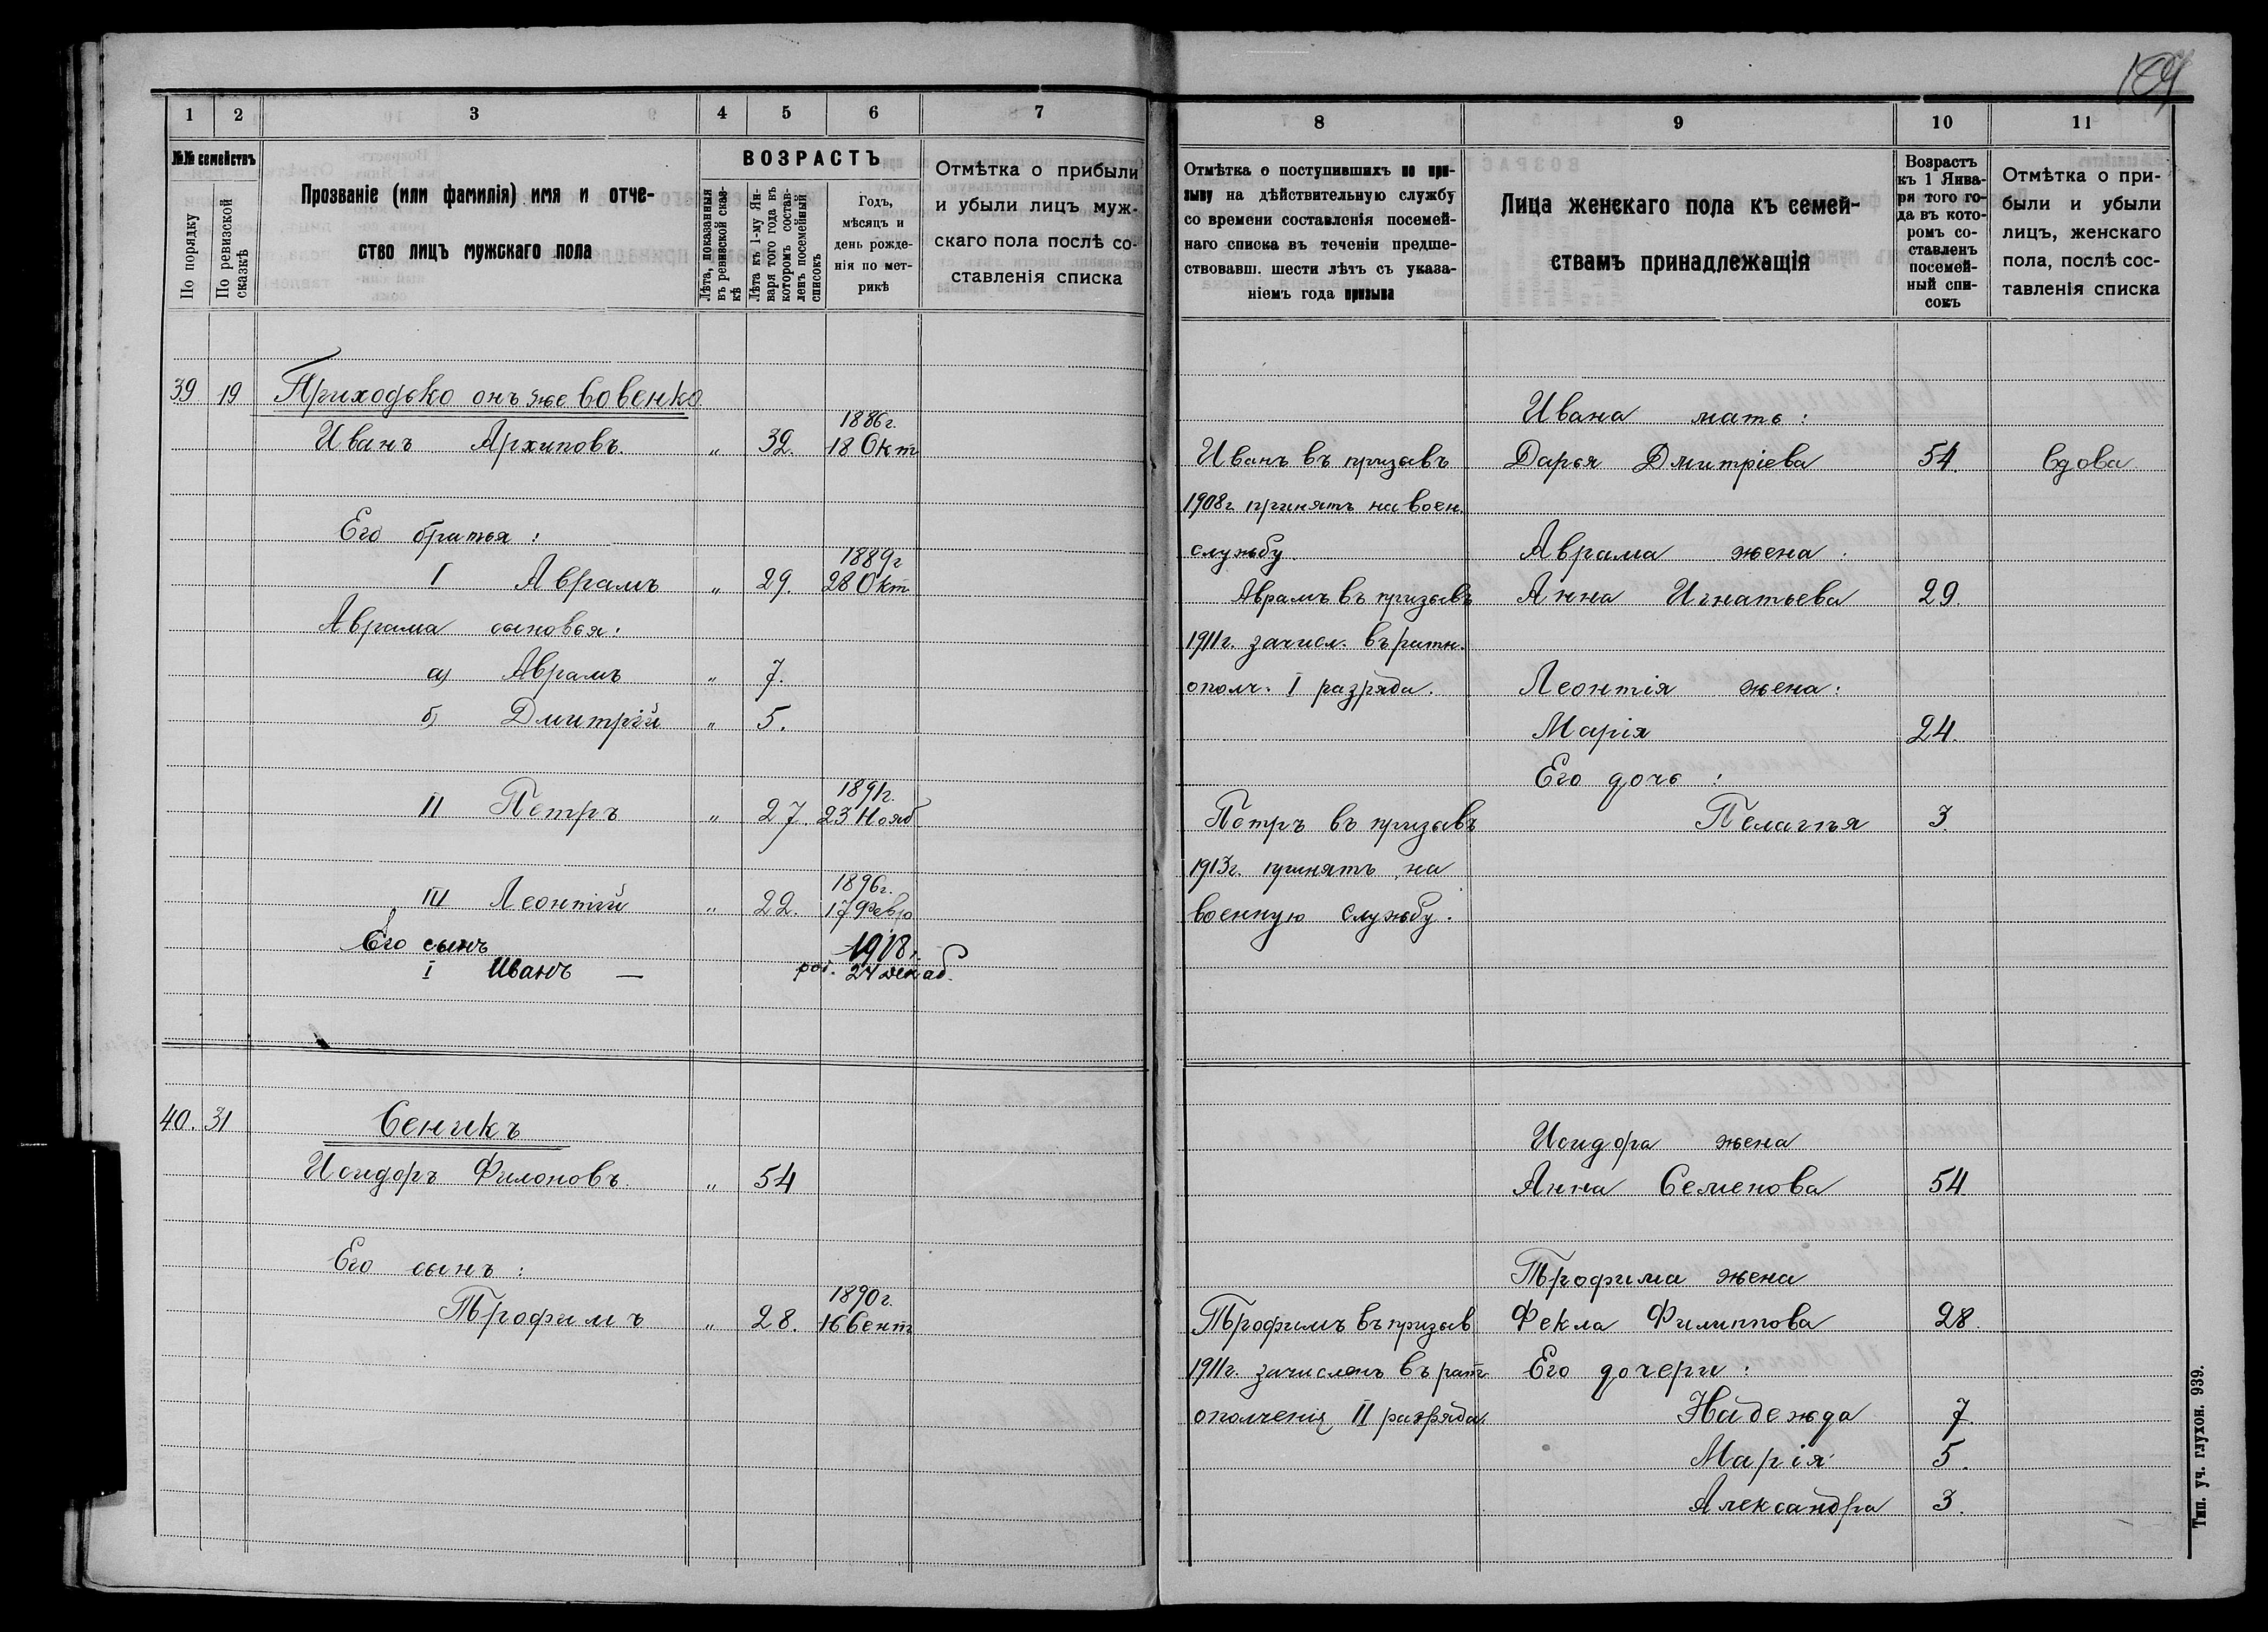 1 2 3 4 5 6 7
№№ семействъ
По порядку
По ревизской сказкѣ
Прозваніе (или фамилія) имя и отче-
ство лицъ мужскаго пола
ВОЗРАСТЪ
Лѣта, показанныя
въ ревизской сказ-
кѣ
Лѣта къ 1-му Ян-
варя того года въ
которомъ состав-
ленъ посемейный
списокъ
Годъ,
мѣсяцъ и
день рожде-
нія по мет-
рикѣ
Отмѣтка о прибыли
и убыли лицъ муж-
скаго пола послѣ со-
ставленія списка
39 19 Приходько онъ же Вовенко
1886г.
Иванъ Архиповъ. „ 32. 18 Окт
Его братья:
1889г
I Аврамъ „ 29. 28 Окт
Аврама сыновья:
а) Аврамъ „ 7.
б) Дмитрій „ 5.
1891г.
II Петръ „ 27. 23 Нояб
1896г.
III Леонтій „ 22. 17 Февр
Его сынъ 1918г.
I Иванъ — род. 24 декаб.
40. 31 Сеникъ
Исидоръ Филоновъ. „ 54
Его сынъ:
1890г.
Трофимъ „ 28. 16 Сент
189
8 9 10 11
Отмѣтка о поступившихъ по при-
зыву на дѣйствительную службу
со времени составленія посемей-
наго списка въ теченіи предше-
ствовавш. шести лѣтъ съ указа-
ніемъ года призыва
Лица женскаго пола къ семей-
ствамъ принадлежащія
Возрастъ
къ 1 Янва-
ря того го-
да въ кото-
ромъ со-
ставленъ
посемей-
ный спи-
сокъ
Отмѣтка о при-
были и убыли
лицъ, женскаго
пола, послѣ сос-
тавленія списка
Ивана мать:
Иванъ въ призывъ Дарья Дмитріева 54. Вдова
1908г принятъ на воен.
службу. Аврама жена:
Аврамъ въ призывъ Анна Игнатьева 29.
1911г. зачисл. въ ратн.
ополч. I разряда. Леонтія жена:
Марія 24.
Его дочь:
Петръ въ призывъ Пелагъя 3.
1913г. принятъ на
военную службу.
Исидора жена
Анна Семенова 54
Трофима жена
Трофимъ въ призыв Фекла Филиппова 28.
1911г. зачисленъ въ рат. Его дочери:
ополченія II разряда. Надежда 7
Марія 5.
Александра 3.
Тип. уч. глухон. 939.